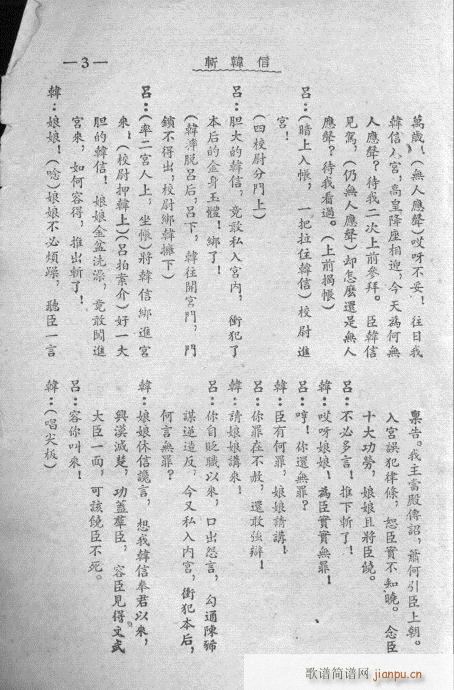 斬韓信
—3—
萬歲、(無人應聲)哎呀不妥！往日我
韓信入宮，高皇降座相迎，今天為何無
人應聲？待我二次上前參拜。臣韓信
見駕，(仍無人應聲)却怎麼還是無人
應聲？待我看過。(上前揭帳)
呂：(暗上入帳，一把拉住韓信)校尉進
宮！
(四校尉分門上)
呂：胆大的韓信，竟敢私入宮內，衝犯了
本后的金身玉體！綁了！
(韓掙脫呂后，呂下，韓往開宮門，門
鎖不得出，校尉綁韓擁下)
呂：(率二宮人上，坐帳)將韓信綁進宮
來！(校尉押韓上)(呂拍案介)好一大
胆的韓信！娘娘金盆洗澡，竟敢闖進
宮來，如何容得，推出斬了！
韓：娘娘！(唸)娘娘不必煩躁，聽臣一言
稟告。我主富殿傳詔，蕭何引臣上朝。
入宮誤犯律條，恕臣實不知曉。念臣
十大功勞，娘娘且將臣饒。
呂：不必多言！推下斬了！
韓：哎呀娘娘！為臣實實無罪！
呂：哼！你還無罪？
韓：臣有何罪，娘娘請講！
呂：你罪在不赦，還敢強辯！
韓：請娘娘講來！
呂：你自貶職以來，口出怨言，勾通陳豨
謀逆造反，今又私入內宮，衝犯本后，
何言無罪？
韓：娘娘休信讒言，想我韓信奉君以來，
興漢滅楚，功蓋羣臣，容臣見得文武
大臣一面，可該饒臣不死。
呂：容你叫來！
韓：(唱尖板)
歌谱简谱网
jianpu.cn